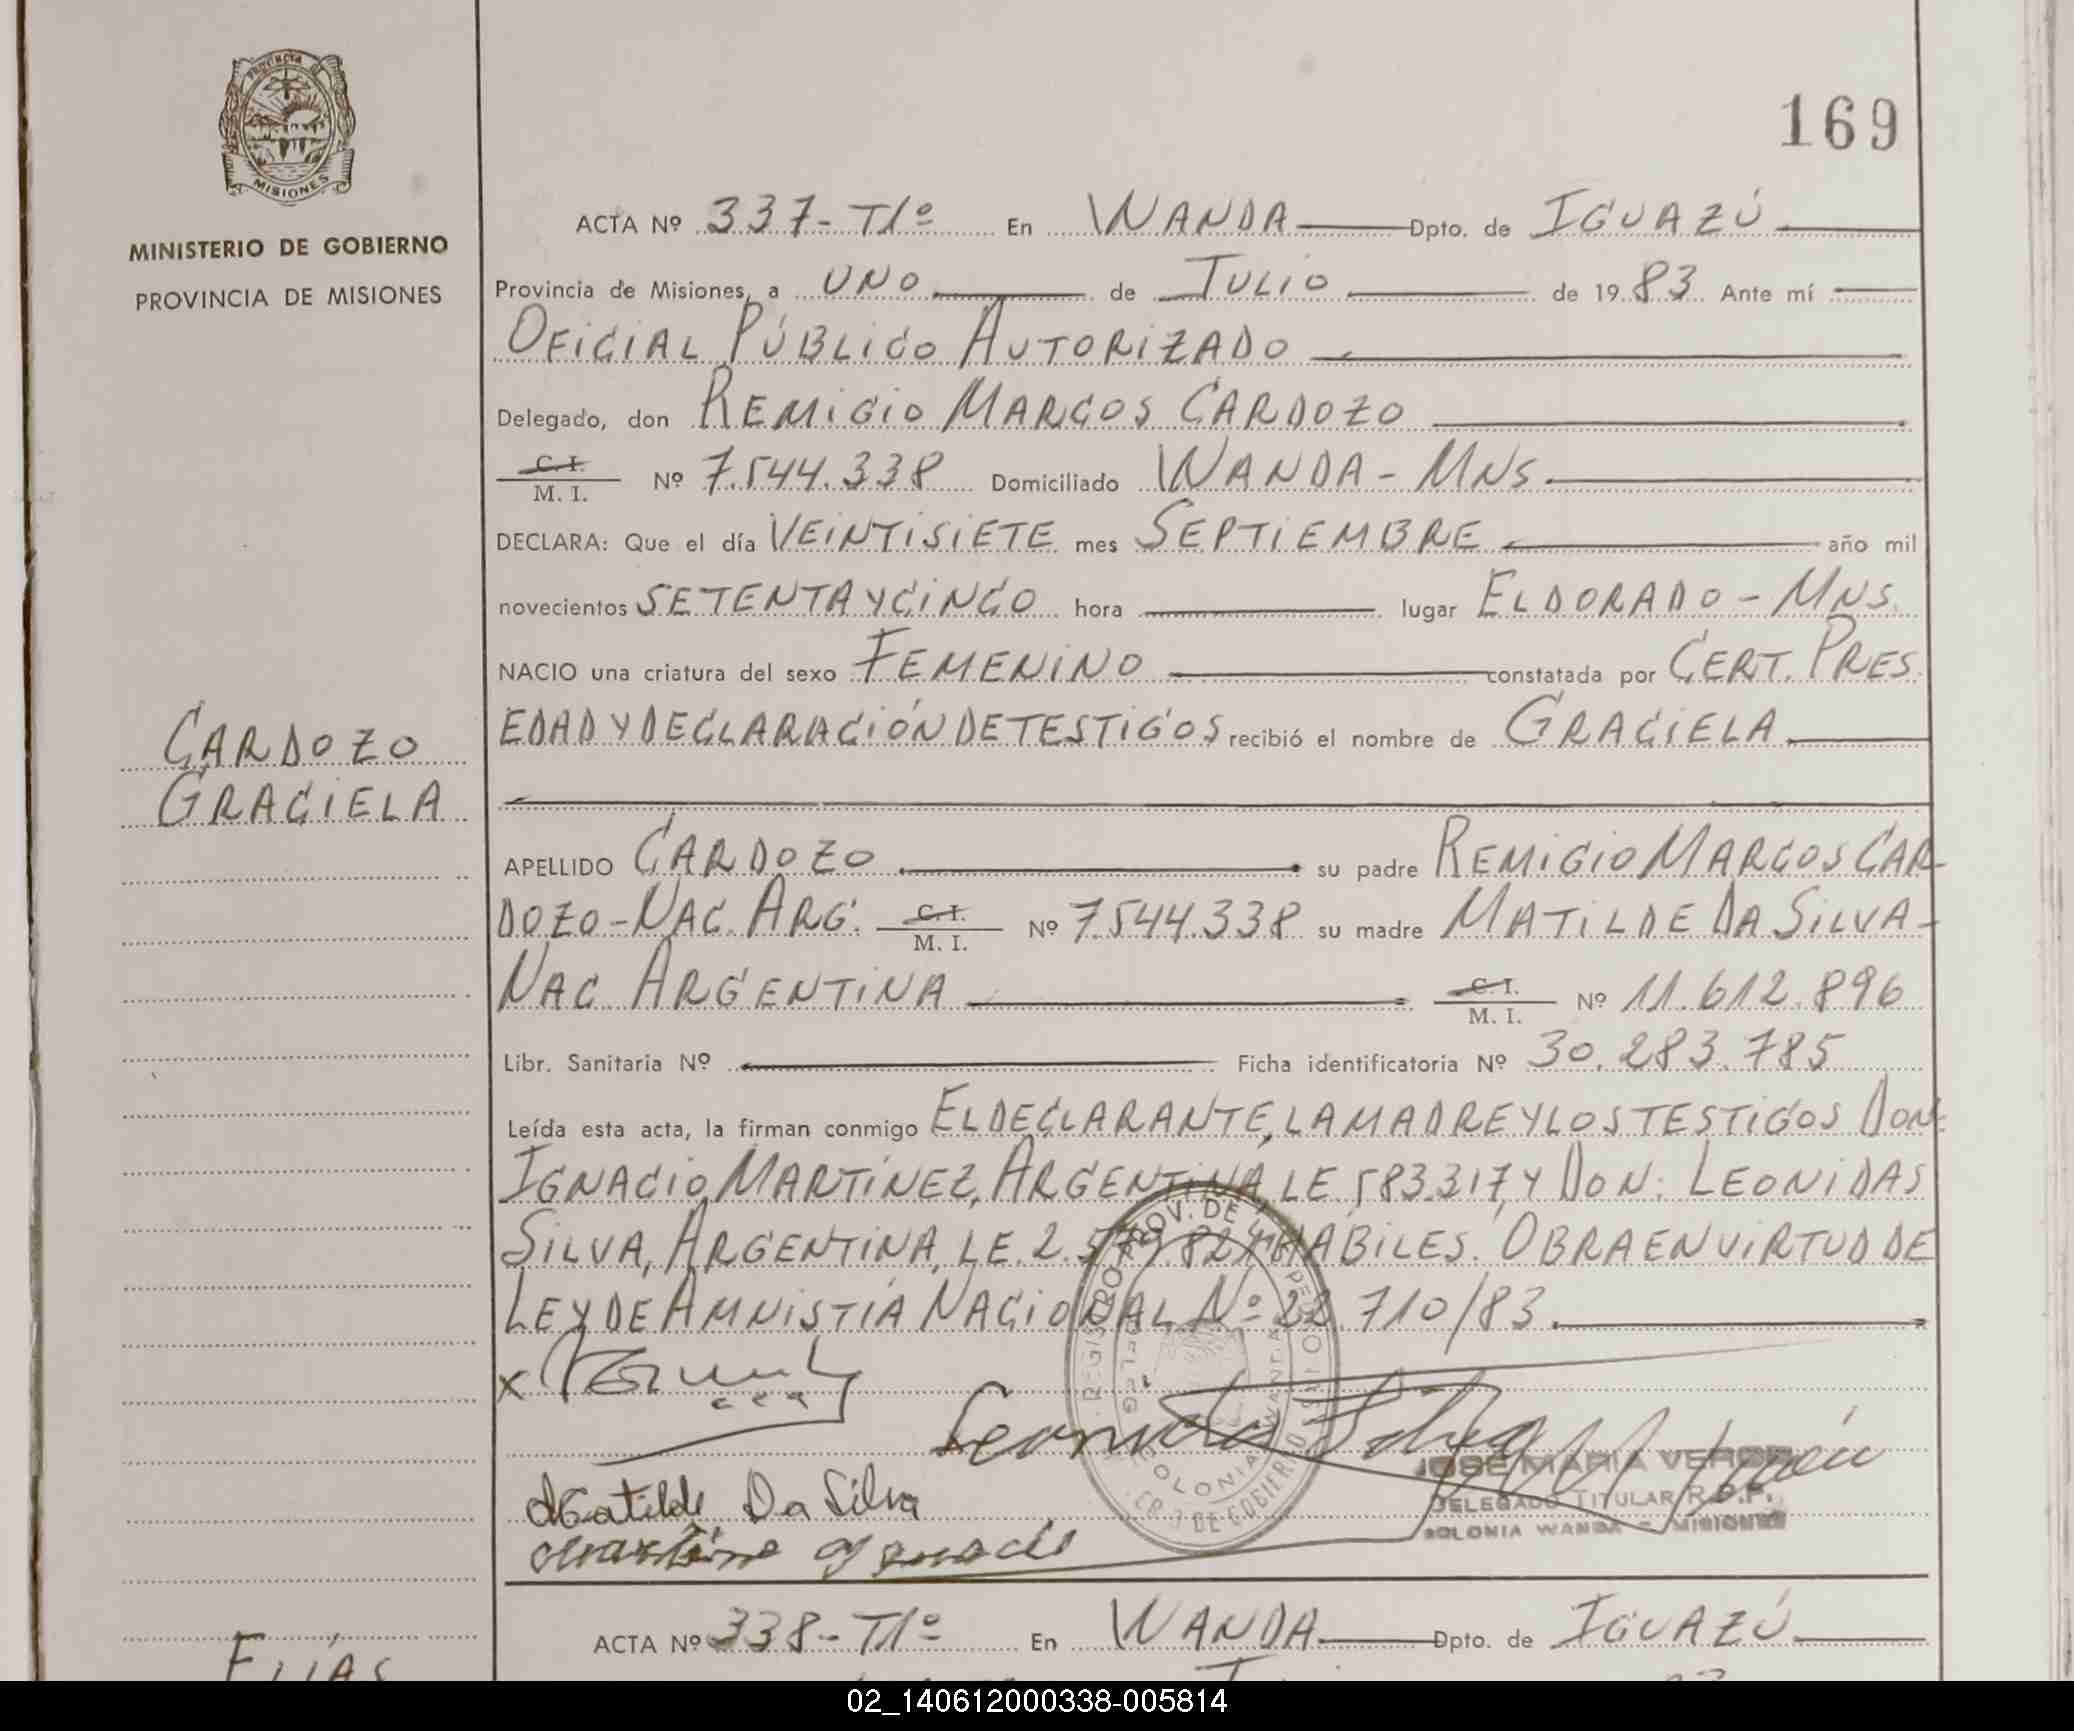 169
PROVINCIA DE
MISIONES
MINISTERIO DE GOBIERNO
PROVINCIA DE MISIONES
CARDOZO
GRACIELA
ACTA Nº 337-T1º En WANDA Dpto. de IGUAZÚ
Provincia de Misiones, a UNO de JULIO de 1983 Ante mí
OFICIAL PÚBLICO AUTORIZADO
Delegado, don REMIGIO MARCOS CARDOZO
C. I. / M. I. Nº 7.544.338 Domiciliado WANDA - MNS
DECLARA: Que el día VEINTISIETE mes SEPTIEMBRE año mil
novecientos SETENTA Y CINCO hora lugar ELDORADO - MNS.
NACIO una criatura del sexo FEMENINO constatada por CERT. PRES.
EDAD Y DECLARACIÓN DE TESTIGOS recibió el nombre de GRACIELA
APELLIDO CARDOZO su padre REMIGIO MARCOS CAR-
DOZO - NAC. ARG. C. I. / M. I. Nº 7.544.338 su madre MATILDE DA SILVA -
NAC. ARGENTINA C. I. / M. I. Nº 11.612.896
Libr. Sanitaria Nº Ficha identificatoria Nº 30.283.785
Leída esta acta, la firman conmigo EL DECLARANTE, LA MADRE Y LOS TESTIGOS DON:
IGNACIO MARTÍNEZ, ARGENTINA, LE 583.317, Y DON: LEONIDAS
SILVA, ARGENTINA, LE. 2.579.824 HÁBILES. OBRA EN VIRTUD DE
LEY DE AMNISTÍA NACIONAL Nº 22.710/83.
x
Leonida Silva
Matilde Da Silva
Martine Ygnacio
COLONIA WANDA
JOSE MARIA
DELEGADO TITULAR R.D.P.
COLONIA WANDA - MISIONES
ACTA Nº 338-T1º En WANDA Dpto. de IGUAZÚ
ELÍAS
02_140612000338-005814